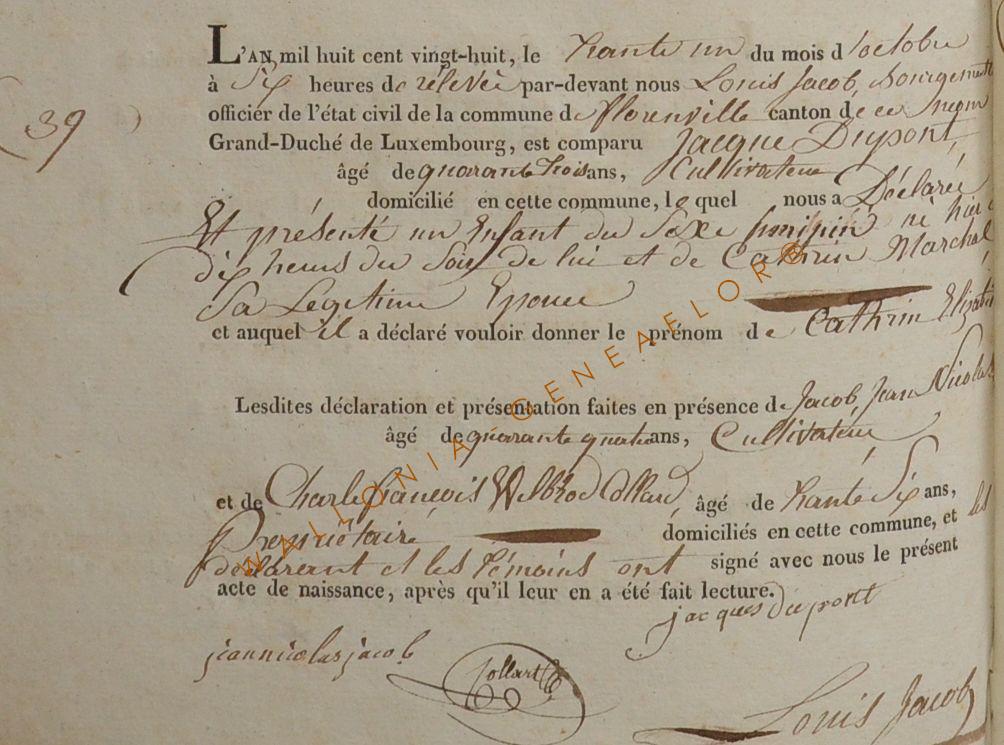 39
L'AN mil huit cent vingt-huit, le trante un du mois d'octobre
à Six heures de rélevée par-devant nous Louis Jacob, bourgemestre
officier de l'état civil de la commune de florenville canton de ce
Grand-Duché de Luxembourg, est comparu Jacque Dupont,
âgé de quarante trois ans, Cultivateur
domicilié en cette commune, lequel nous a Déclaré
Et présenté un Enfant du Sexe né hier
dix heurs du Soir de lui et de Cathrin Marchal
Sa Legitime Epouse
et auquel il a déclaré vouloir donner le prénom de Cathrin
Lesdites déclaration et présentation faites en présence de Jacob Jean Nicolas
âgé de quarante quatre ans, Cultivateur
et de Charle françois Collard, âgé de trante Six ans,
Propriétaire domiciliés en cette commune, et les
déclarant et les témoins ont signé avec nous le présent
acte de naissance, après qu'il leur en a été fait lecture.
jacques dupont
jeannicolas jacob
Collart
Louis Jacob
WALLONIA GENEAELOR®